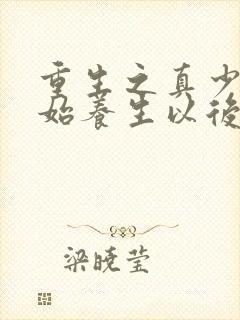 重生之真少
始养生以後
梁晓莹